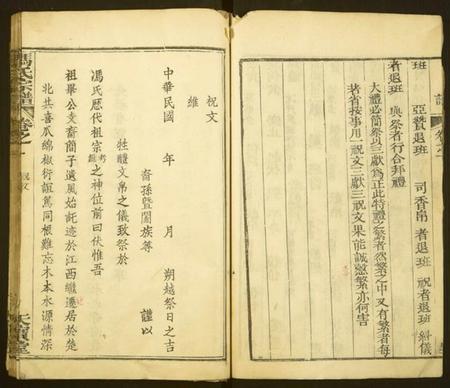 班　亞贊退班　司香帛者退班　祝者退班　糾儀
者退班　與祭者行合邦禮
大禮必簡祭以三獻為正此特禮之繁者然繁之中又有繁者每
著省按事用一祝文三獻三祝文果能誠敬繁亦何害
祝文
維
中華民國　年　月　朔越祭日之吉
裔孫暨闔族等　謹以
牲醴文帛之儀致祭於
馮氏歷代祖宗考妣之神位前曰伏惟吾
祖畢公支裔簡子遺風始託迹於江西繼遷居於楚
北共喜瓜綿椒衍詎罵同根難忘木本水源情深
馮氏宗譜
卷之一
祝文